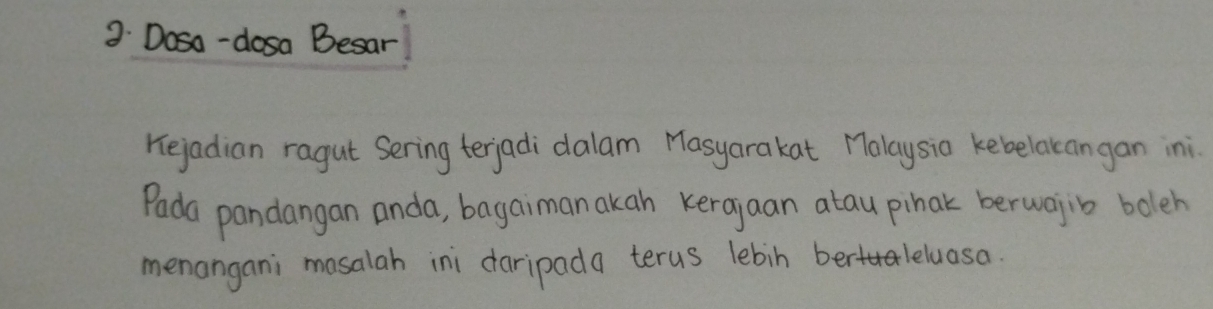 2. Dosa-dosa Besar
Kejadian ragut Sering terjadi dalam Masyarakat Malaysia kebelakangan ini.
Pada pandangan anda, bagaimanakah kerajaan atau pihak berwajib boleh
menangani masalah ini daripada terus lebih berleluasa.